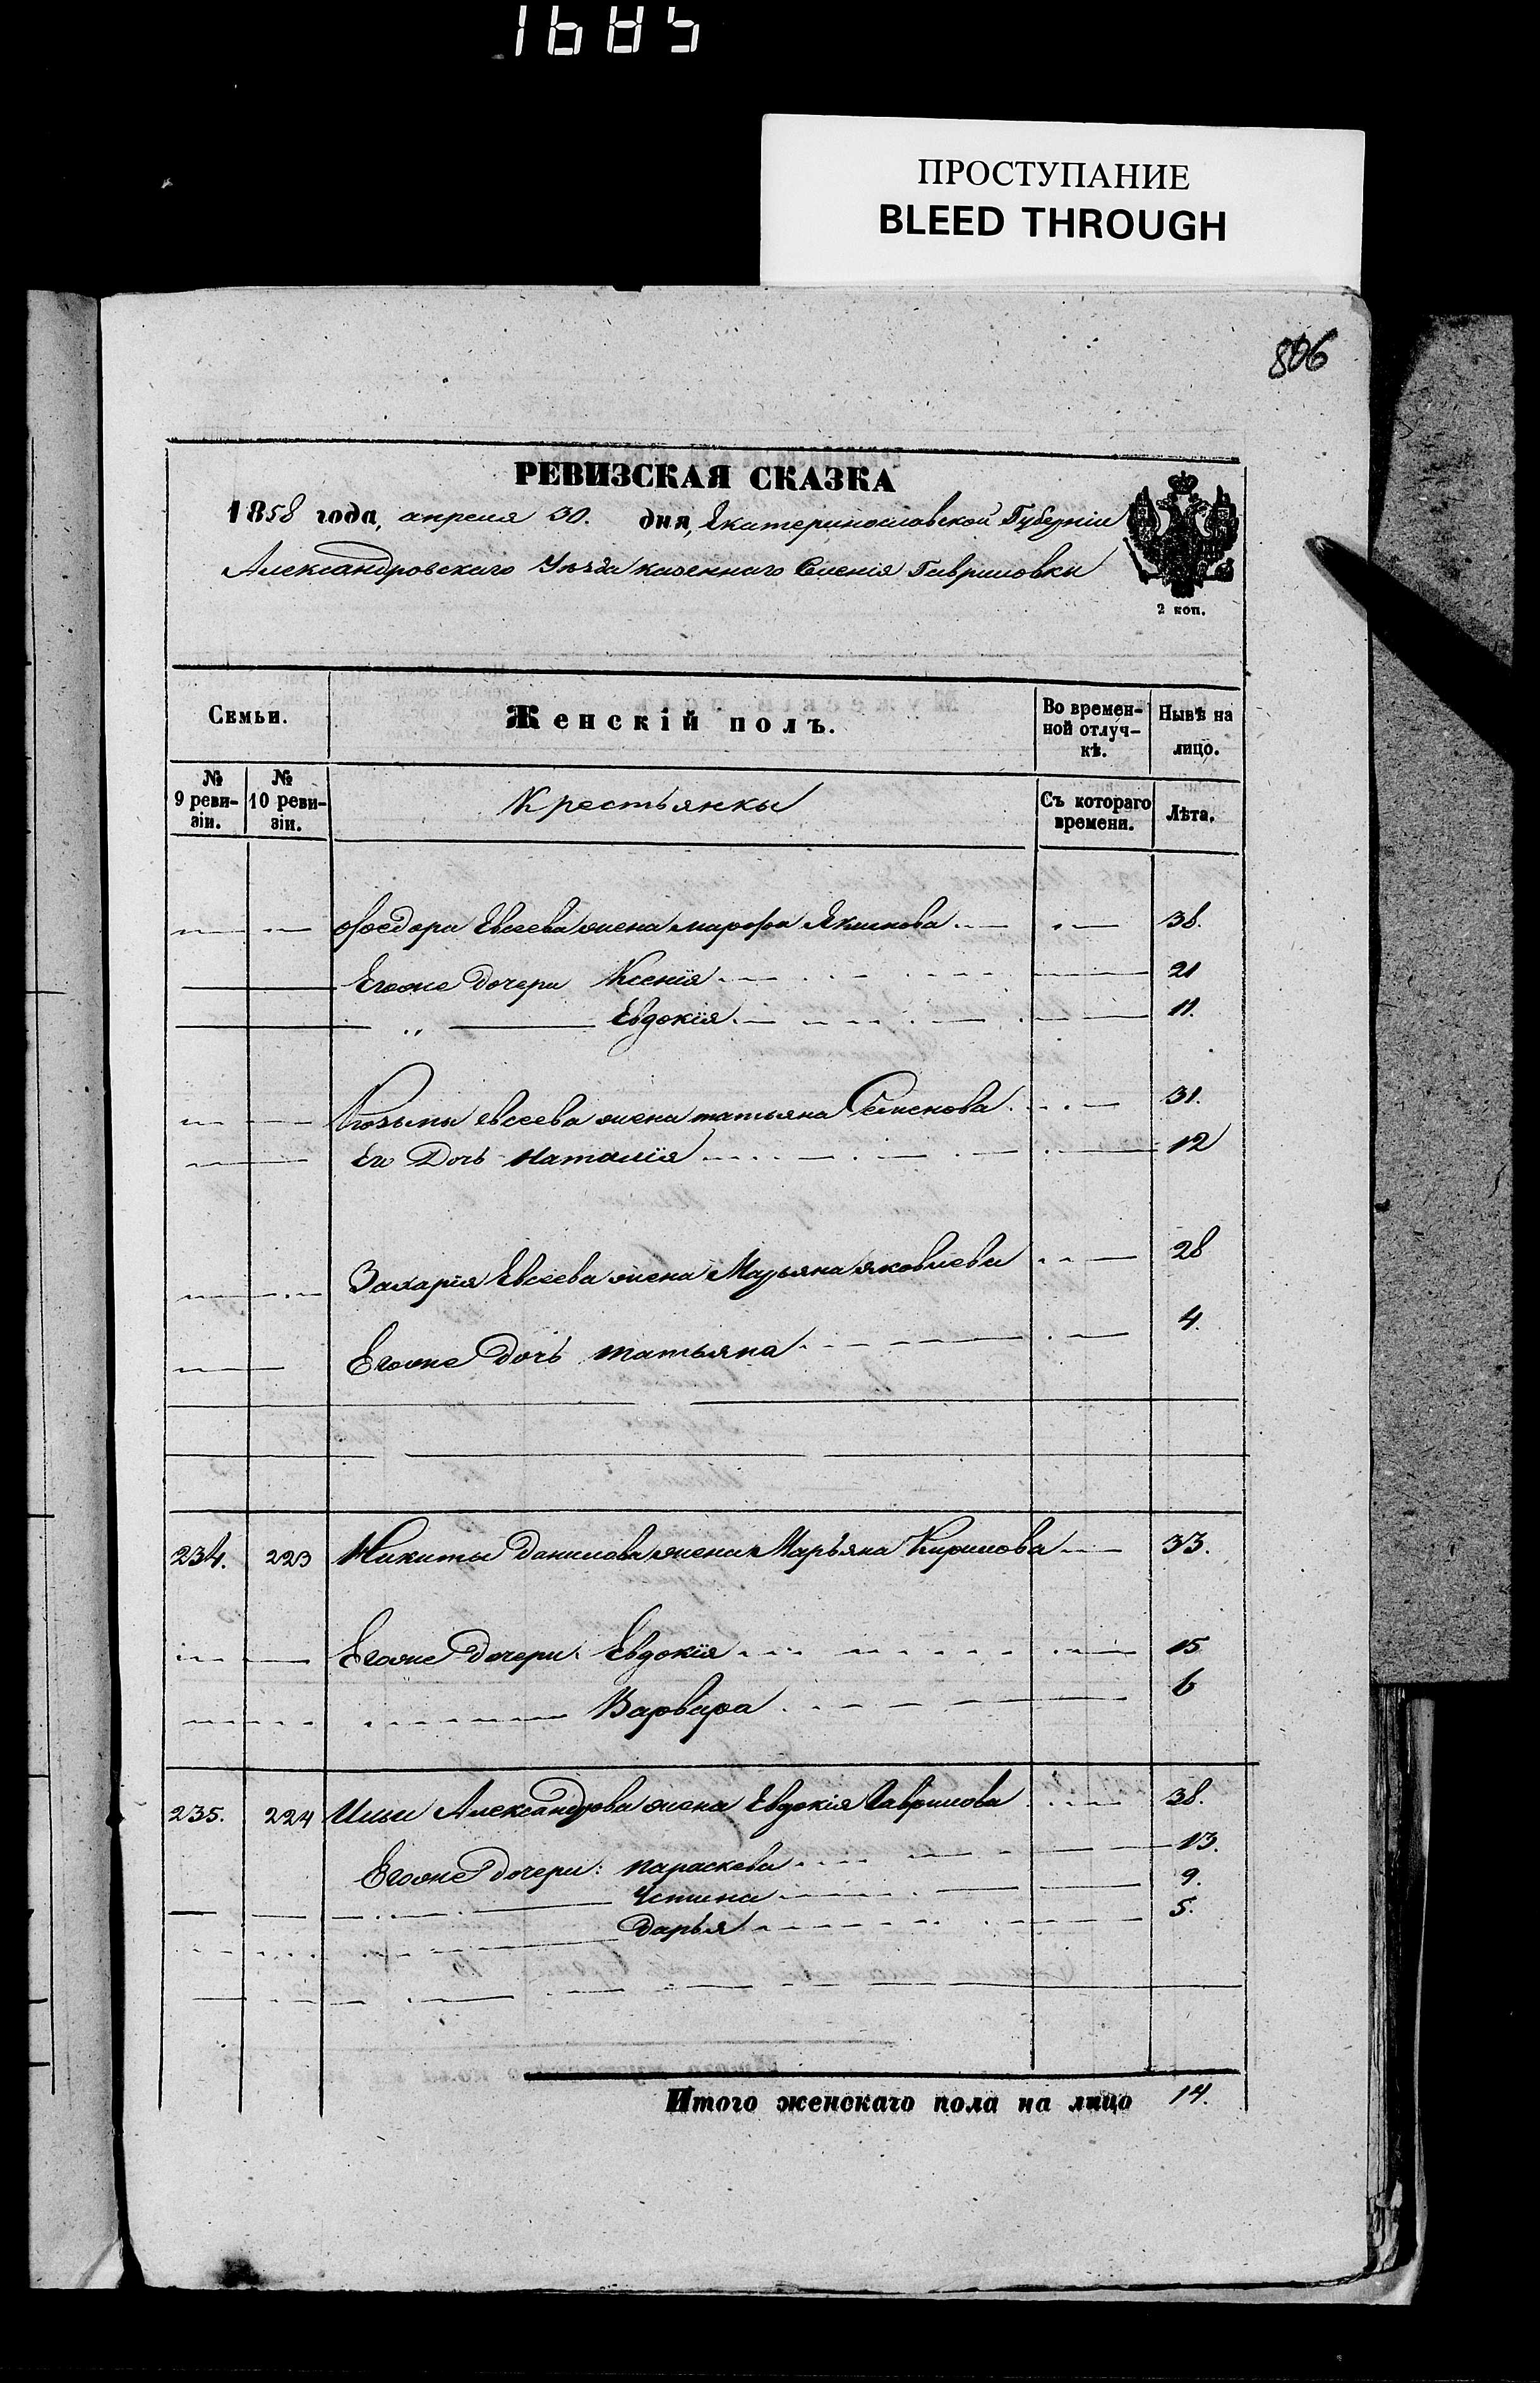 1685
ПРОСТУПАНИЕ
BLEED THROUGH
806
РЕВИЗСКАЯ СКАЗКА
1858 года, апреля 30. дня, Екатеринославской Губерніи
Александровскаго Уѣзда казеннаго Селенія Гавриловки
2 коп.
Семьи. Женскій полъ. Во времен- Нынѣ на
ной отлуч- лицо.
кѣ.
№ № Крестьянки Съ котораго Лѣта.
9 реви- 10 реви- времени.
зіи. зіи.
Фёдора Евсеева жена марфа Якимова 38.
Егоже дочери Ксенія 21
" Евдокія 11.
Козьмы евсеева жена татьяна Семенова 31.
Его Дочь Наталія 12
Захарія Евсеева жена Марьяна яковлева 28
Егоже дочь татьяна 4.
234. 223 Никиты Данилова жена Марьяна Кирилова 33.
Егоже дочери: Евдокія 15
Варвара 6
235. 224 Ильи Александрова жена Евдокія Гаврилова 38.
Егоже дочери: параскева 13.
Устина 9.
Дарья 5.
Итого женскаго пола на лицо 14.